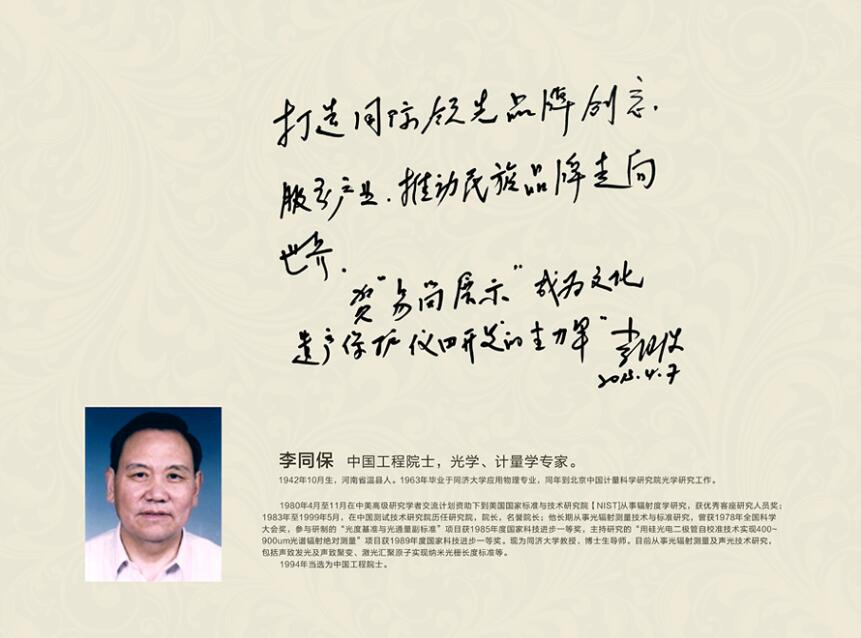 打造国际领先品牌创意.
服务产业.推动民族品牌走向
世界.
贺"易尚展示"成为文化
遗产保护仪四开发的主力军"李同保
2015.4.7
李同保 中国工程院士，光学、计量学专家。
1942年10月生，河南省温县人。1963年毕业于同济大学应用物理专业，同年到北京中国计量科学研究院光学研究工作。
1980年4月至11月在中美高级研究学者交流计划资助下到美国国家标准与技术研究院【NIST]从事辐射度学研究，获优秀客座研究人员奖；
1983年至1999年5月，在中国测试技术研究院历任研究院，院长，名誉院长；他长期从事光辐射测量技术与标准研究，曾获1978年全国科学
大会奖，参与研制的“光度基准与光通量副标准”项目获1985年度国家科技进步一等奖，主持研究的“用硅光电二极管自校准技术实现400~
900um光谱辐射绝对测量”项目获1989年度国家科技进步一等奖。现为同济大学教授、博士生导师。目前从事光辐射测量及声光技术研究，
包括声致发光及声致聚变、激光汇聚原子实现纳米光栅长度标准等。
1994年当选为中国工程院士。